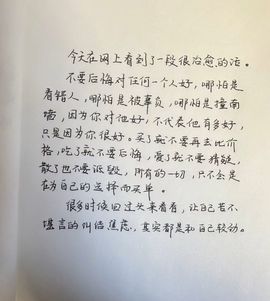 今天在网上看到了一段很治愈的话。
不要后悔对任何一个人好，哪怕是
看错人，哪怕是被辜负，哪怕是撞南
墙，因为你对他好，不代表他有多好，
只是因为你很好。买了就不要再去比价
格，吃了就不要后悔，爱了就不要猜疑，
散了也不要诋毁，所有的一切，只不会是
在为自己的选择而买单。
很多时候回过头来看看，让自己苦不
堪言的纠结焦虑，其实都是和自己较劲。